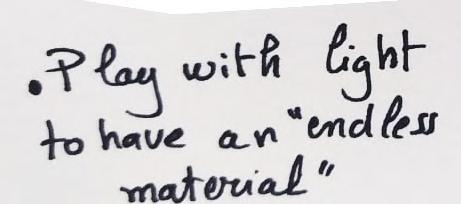 .Play with light
to have an "endless
material"